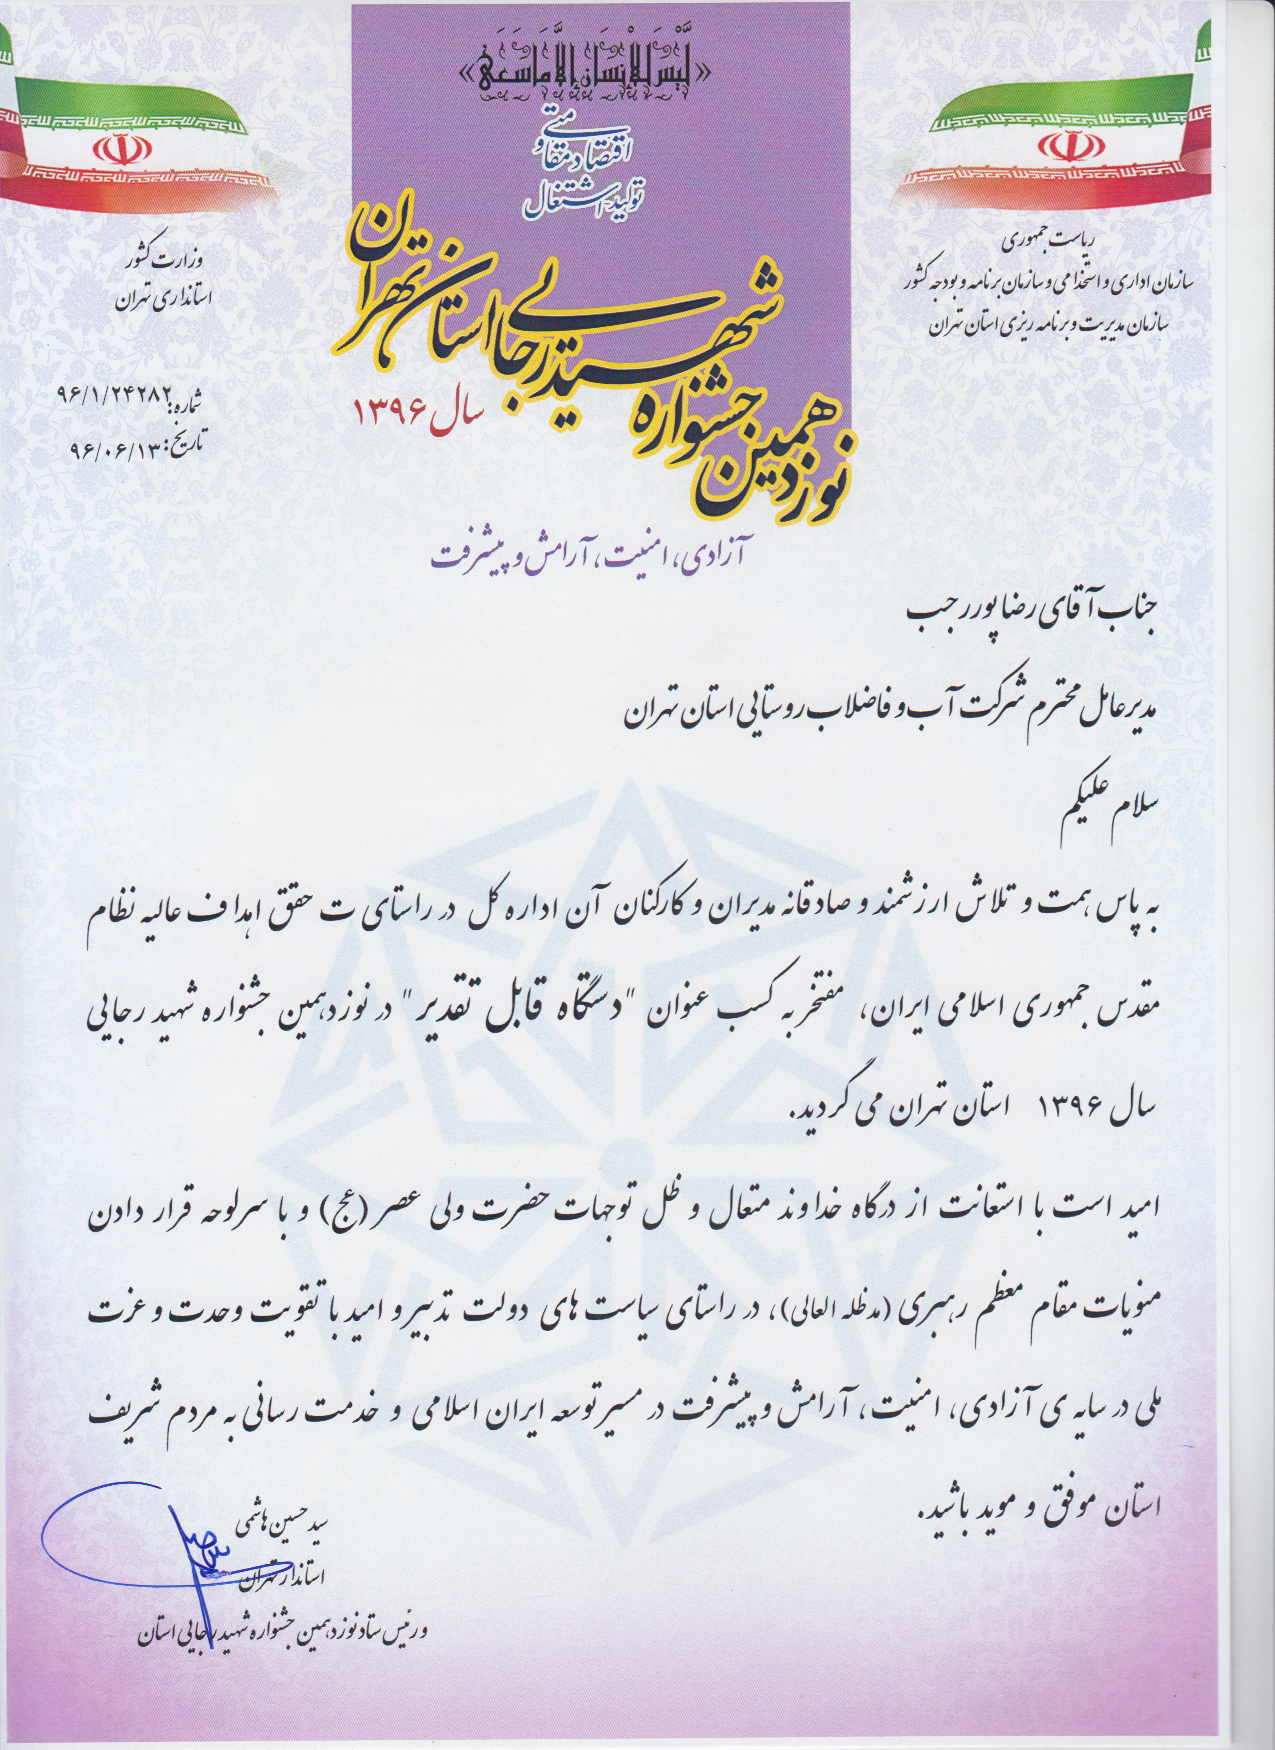 «لَّيْسَ لِلْإِنسَانِ إِلَّا مَا سَعَىٰ»
اقتصاد مقاومتی
تولید-اشتغال
ریاست جمهوری
سازمان اداری و استخدامی و سازمان برنامه و بودجه کشور
سازمان مدیریت و برنامه ریزی استان تهران
وزارت کشور
استانداری تهران
شماره: ۹۶/۱/۲۴۲۸۲
تاریخ: ۹۶/۰۶/۱۳
نوزدهمین جشنواره
شهید رجایی استان تهران
سال ۱۳۹۶
آزادی، امنیت، آرامش و پیشرفت
جناب آقای رضا پوررجب
مدیرعامل محترم شرکت آب و فاضلاب روستایی استان تهران
سلام علیکم
به پاس همت و تلاش ارزشمند و صادقانه مدیران و کارکنان آن اداره کل در راستای ت حقق اهداف عالیه نظام
مقدس جمهوری اسلامی ایران، مفتخر به کسب عنوان "دستگاه قابل تقدیر" در نوزدهمین جشنواره شهید رجایی
سال ۱۳۹۶ استان تهران می گردید.
امید است با استعانت از درگاه خداوند متعال و ظل توجهات حضرت ولی عصر (عج) و با سرلوحه قرار دادن
منویات مقام معظم رهبری (مدظله العالی)، در راستای سیاست های دولت تدبیر و امید با تقویت وحدت و عزت
ملی در سایه ی آزادی، امنیت، آرامش و پیشرفت در مسیر توسعه ایران اسلامی و خدمت رسانی به مردم شریف
استان موفق و موید باشید.
سید حسین هاشمی
استاندار تهران
و رئیس ستاد نوزدهمین جشنواره شهید رجایی استان